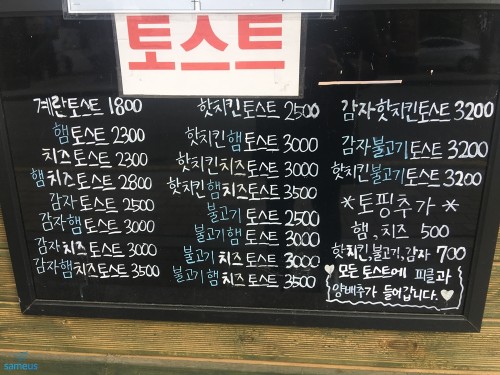 토스트
계란토스트 1800
햄토스트 2300
치즈토스트 2300
햄치즈토스트 2800
감자토스트 2500
감자햄토스트 3000
감자치즈토스트 3000
감자햄치즈토스트 3500
핫치킨토스트 2500
핫치킨햄토스트 3000
핫치킨치즈토스트 3000
핫치킨햄치즈토스트 3500
불고기토스트 2500
불고기햄토스트 3000
불고기치즈토스트 3000
불고기햄치즈토스트 3500
감자핫치킨토스트 3200
감자불고기토스트 3200
핫치킨불고기토스트 3200
*토핑추가*
햄,치즈 500
핫치킨,불고기,감자 700
♥모든 토스트에 피클과
양배추가 들어갑니다.♥
sameus